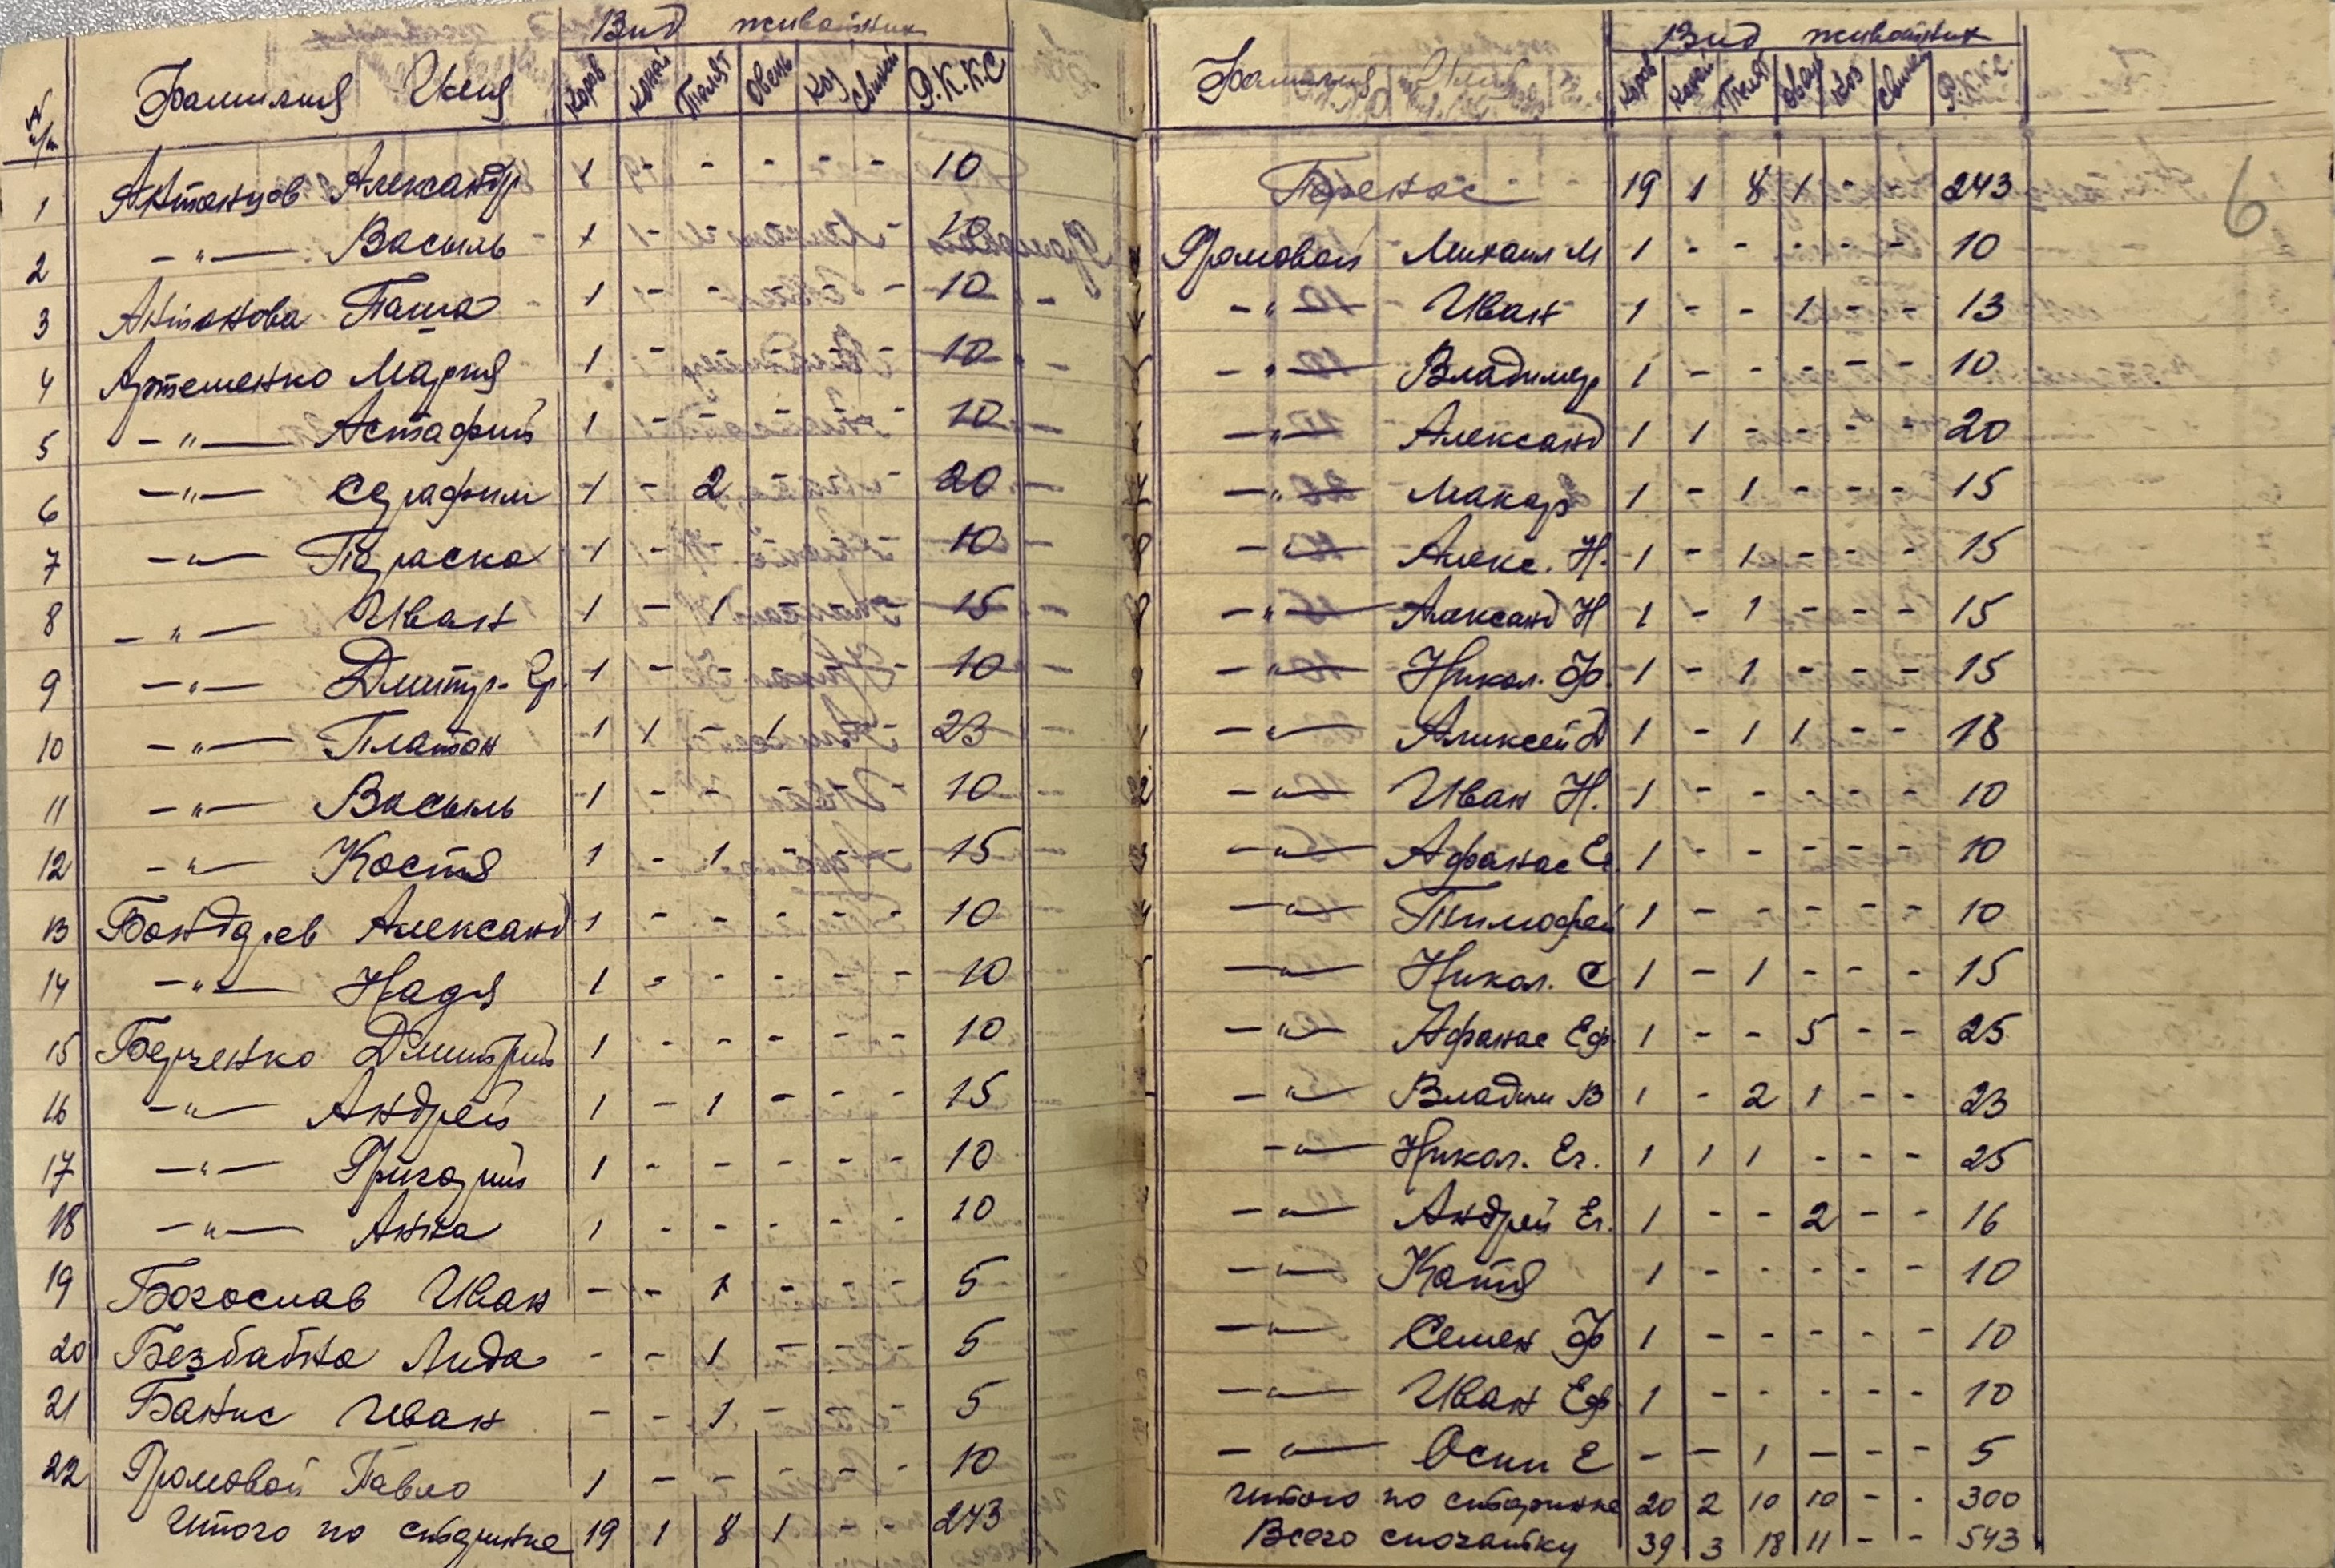 Вид животних
№ п/п Фамилия Имя Коров Коней Телят Овець Коз Свиней Р.К.К.С
1 Антонцов Александр 1 - - - - - 10
2 -"- Васыль 1 - 10
3 Антонова Паша 1 - - - - - 10
4 Артеменко Мария 1 - - - - - 10
5 -"- Астафий 1 - - - - - 10
6 -"- Серафим 1 - 2 - - - 20
7 -"- Параска 1 - - - - - 10
8 -"- Иван 1 - 1 - - - 15
9 -"- Дмитр. Гр. 1 - - - - - 10
10 -"- Платон 1 1 - 1 - - 23
11 -"- Васыль 1 - - - - - 10
12 -"- Костя 1 - 1 - - - 15
13 Бондарев Александ 1 - - - - - 10
14 -"- Надя 1 - - - - - 10
15 Берченко Дмитрий 1 - - - - - 10
16 -"- Андрей 1 - 1 - - - 15
17 -"- Григорий 1 - - - - - 10
18 -"- Анна 1 - - - - - 10
19 Богослав Иван - - 1 - - - 5
20 Безбабна Лида - - 1 - - - 5
21 Банис Иван - - 1 - - - 5
22 Громовой Павло 1 - - - - - 10
Итого по сторинке 19 1 8 1 - - 243
Вид животних
Фамилия Имя Коров Коней Телят Овець Коз Свиней Р.К.К.С.
6
Перенос 19 1 8 1 - - 243
Громовой Михаил М 1 - - - - - 10
-"- Иван 1 - - 1 - - 13
-"- Владимер 1 - - - - - 10
-"- Александ 1 1 - - - - 20
-"- Макар 1 - 1 - - - 15
-"- Алекс. Н. 1 - 1 - - - 15
-"- Александ Н 1 - 1 - - - 15
-"- Никол. Ф. 1 - 1 - - - 15
-"- Алексей Д 1 - 1 1 - - 18
-"- Иван Н. 1 - - - - - 10
-"- Афанас Ег. 1 - - - - - 10
-"- Тимофей 1 - - - - - 10
-"- Никол. С 1 - 1 - - - 15
-"- Афанас Еф 1 - - 5 - - 25
-"- Владим В 1 - 2 1 - - 23
-"- Никол. Ег. 1 1 1 - - - 25
-"- Андрей Ег. 1 - - 2 - - 16
-"- Катя 1 - - - - - 10
-"- Семен Ф 1 - - - - - 10
-"- Иван Еф. 1 - - - - - 10
-"- Осип Е - - 1 - - - 5
Итого по сторинке 20 2 10 10 - - 300
Всего спочатку 39 3 18 11 - - 543